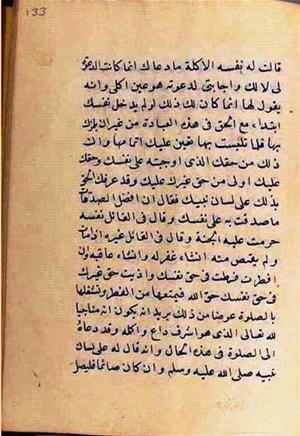 133
قالت له نفسه الاكلة ما دعاك انما كانت الدعوة
لى لا لك واجابتى لدعوته هو عين اكلى وانه
يقول لها انما كان لك ذلك لو لم يدخل نفسك
ابتداء مع الحق فى هذه العبادة من غير ان يلزمك
بها فلما تلبست بها تعين عليك اتمامها وان
ذلك من حقك الذى اوجبته على نفسك وحقك
عليك اولى من حق غيرك عليك وقد عرفك الحق
بذلك على لسان نبيك فقال ان افضل الصدقات
ما صدقت به على نفسك وقال فى القاتل نفسه
حرمت عليه الجنة وقال فى القاتل غيره اذا مات
ولم يقتص منه ان شاء غفر له وان شاء عاقبه وان
افطرت فرطت فى حق نفسك واذيت حق غيرك
فى حق نفسك حق الله فيمنعها من الفطر ويشغلها
بالصلوة عوضا من ذلك يريد انه يكون انه مناجيا
لله تعالى الذى هو اشرف داع واكله وقد دعاه
الى الصلوة فى هذه الحال وانه قال له على لسان
نبيه صلى الله عليه وسلم وان كان صائما فليصل